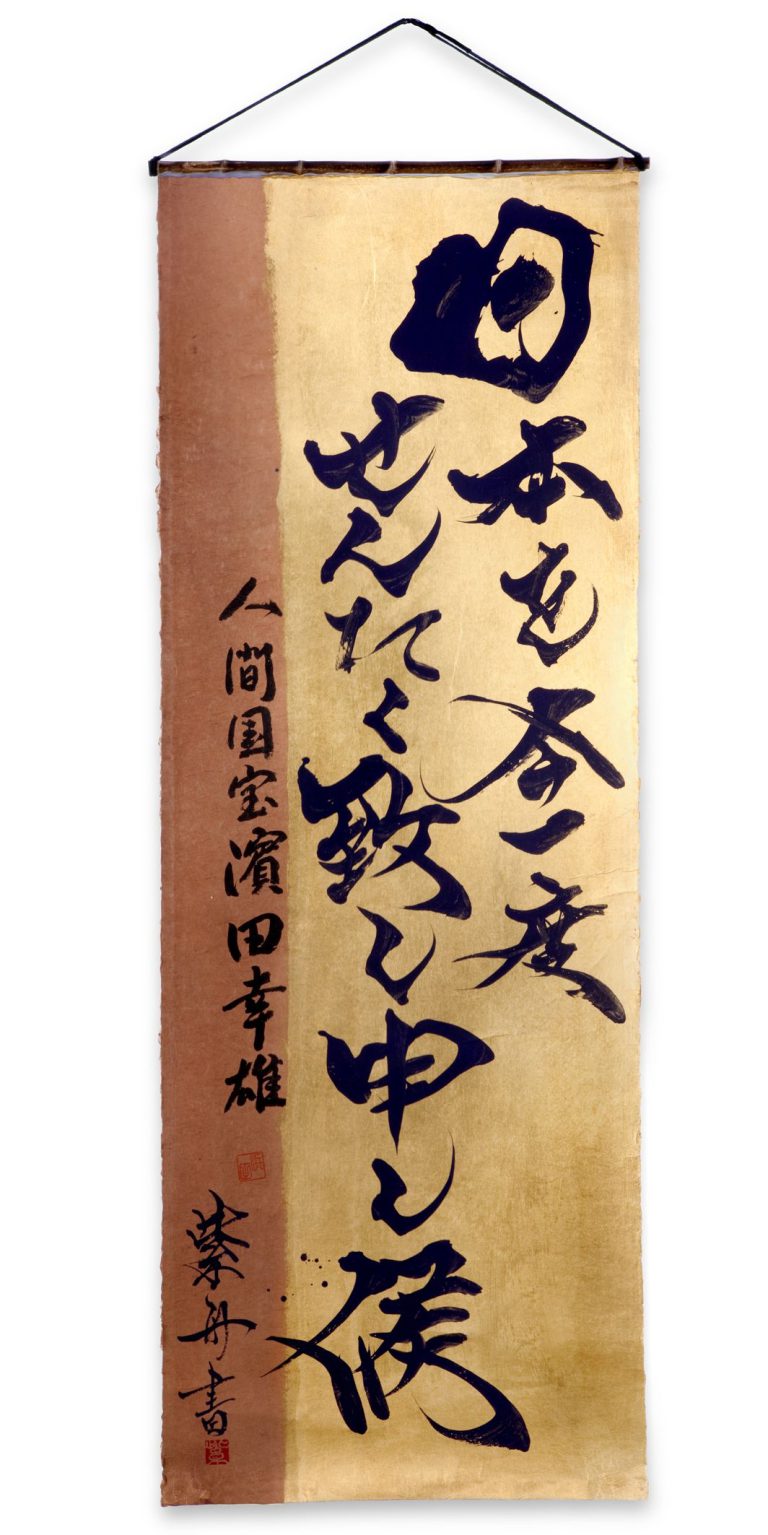 日本を今一度
せんたく致し申し候
人間国宝濱田幸雄
紫舟書